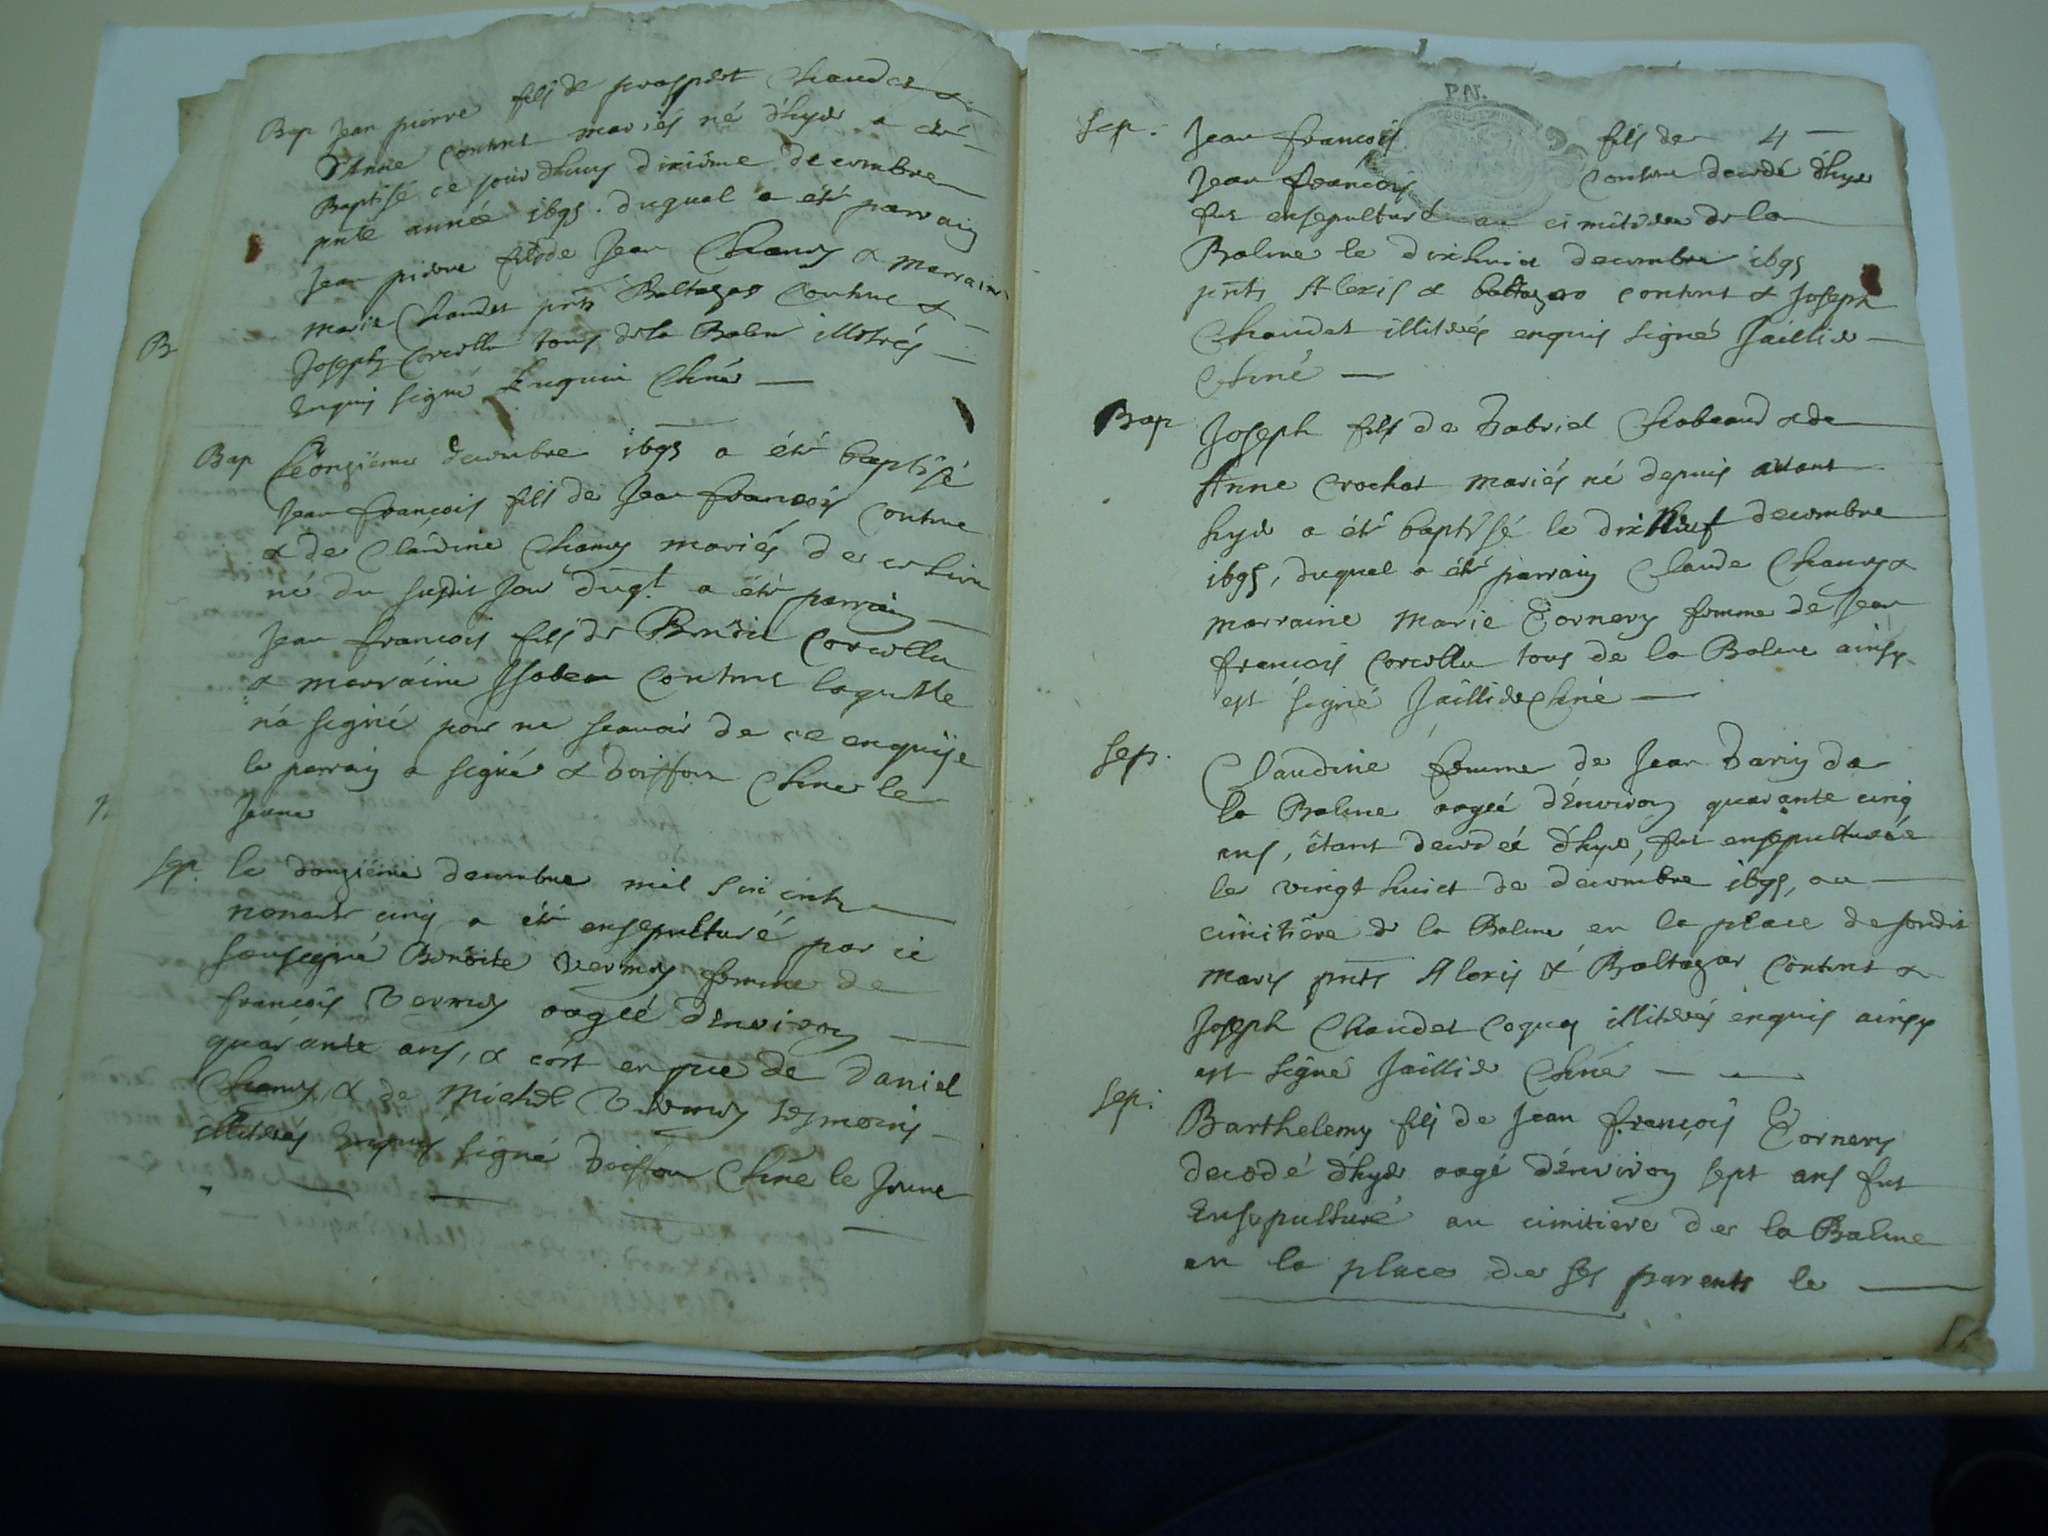 Bap Jean pierre fils de prospert Chaudet &
d'Anne Conture mariés né d'hyer a été
Baptisé ce jour dhuy dixième decembre
pnte année 1695. duquel a été parrain
Jean pierre fils de Jean Chancy & marraine
marie Chaudet pnts Baltazar Conture &
B
Joseph Corcellu tous de la Balme illitérés
Enquis signé Enguin Curé
Bap Ce onzième decembre 1695 a été baptisé
Jean françois fils de Jean françois Conture
& de Claudine Chancy mariés de ce lieu
né du susdit jour duq.t a été parrain
Jean françois fils de Benoit Corcellu
& marraine Isabeau Conture laquelle
n'a signé pour ne scavoir de ce enquise
le parrain a signé & Boisson Curé le
Jeune
Sep. le douzième decembre mil six cents
nonante cinq a été ensepulturé par ie
sousigné Benoite Vermey femme de
françois Vermey aagée d'Environ
quarante ans, & c'est en pnce de Daniel
Chancy, & de Michel Vermey tesmoins
illitérés Enquis signé Boisson Curé le Jeune
P.N.
Sep. Jean françois fils de 4
Jean françois Conture decedé d'hyer
fut ensepulturé au cimitière de la
Balme le dixhuict decembre 1695
pnts Alexis & baltazar Conture & Joseph
Chaudet illitérés enquis signé Jaillier
Curé
Bap Joseph fils de Gabriel Chabeaud & de
Anne Crochat mariés né depuis avant
hyer a été baptisé le dixneuf decembre
1695, duquel a été parrain Claude Chancy &
marraine Marie Cornery femme de Jean
françois Corcellu tous de la Balme ainsy
est signé Jaillier Curé
Sep. Claudine femme de Jean Darin de
la Balme aagée d'Environ quarante cinq
ans, étant decedée d'hyer, fut ensepulturée
le vingt huict de decembre 1695, au
cimitière de la Balme en la place de sondit
mary pnts Alexis & Baltazar Conture &
Joseph Chaudet Coquaz illitérés enquis ainsy
est signé Jaillier Curé
Sep. Barthelemy fils de Jean françois Cornery
decedé d'hyer aagé d'Environ sept ans fut
Ensepulturé au cimitiere de la Balme
en la place de ses parents le